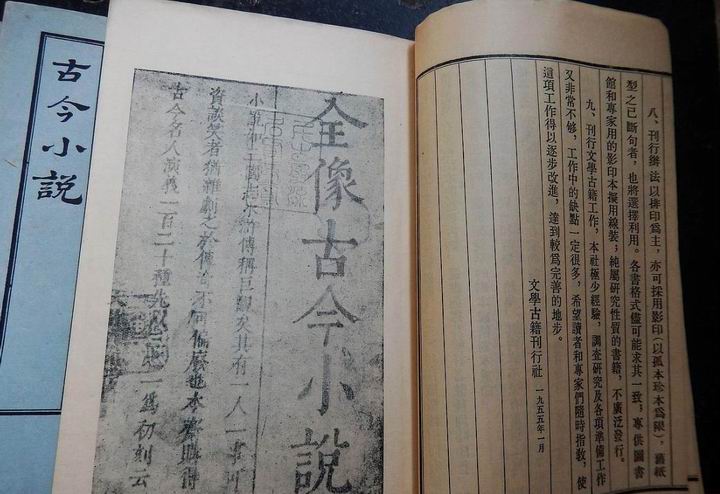 古今小說
全像古今小說
小說如三國志水滸傳稱巨觀矣其有一人一事可
資談笑者猶雜劇之於傳奇不可偏廢也本齋購得
古今名人演義一百二十種先以三之一為初刻云
八、刊行辦法以排印爲主，亦可採用影印（以孤本珍本爲限），舊紙
型之已斷句者，也將選擇利用。各書格式儘可能求其一致；專供圖書
館和專家用的影印本擬用線裝；純屬研究性質的書籍，不廣泛發行。
九、刊行文學古籍工作，本社極少經驗，調查研究及各項準備工作
又非常不够，工作中的缺點一定很多，希望讀者和專家們隨時指教，使
這項工作得以逐步改進，達到較爲完善的地步。
文學古籍刊行社 一九五五年一月